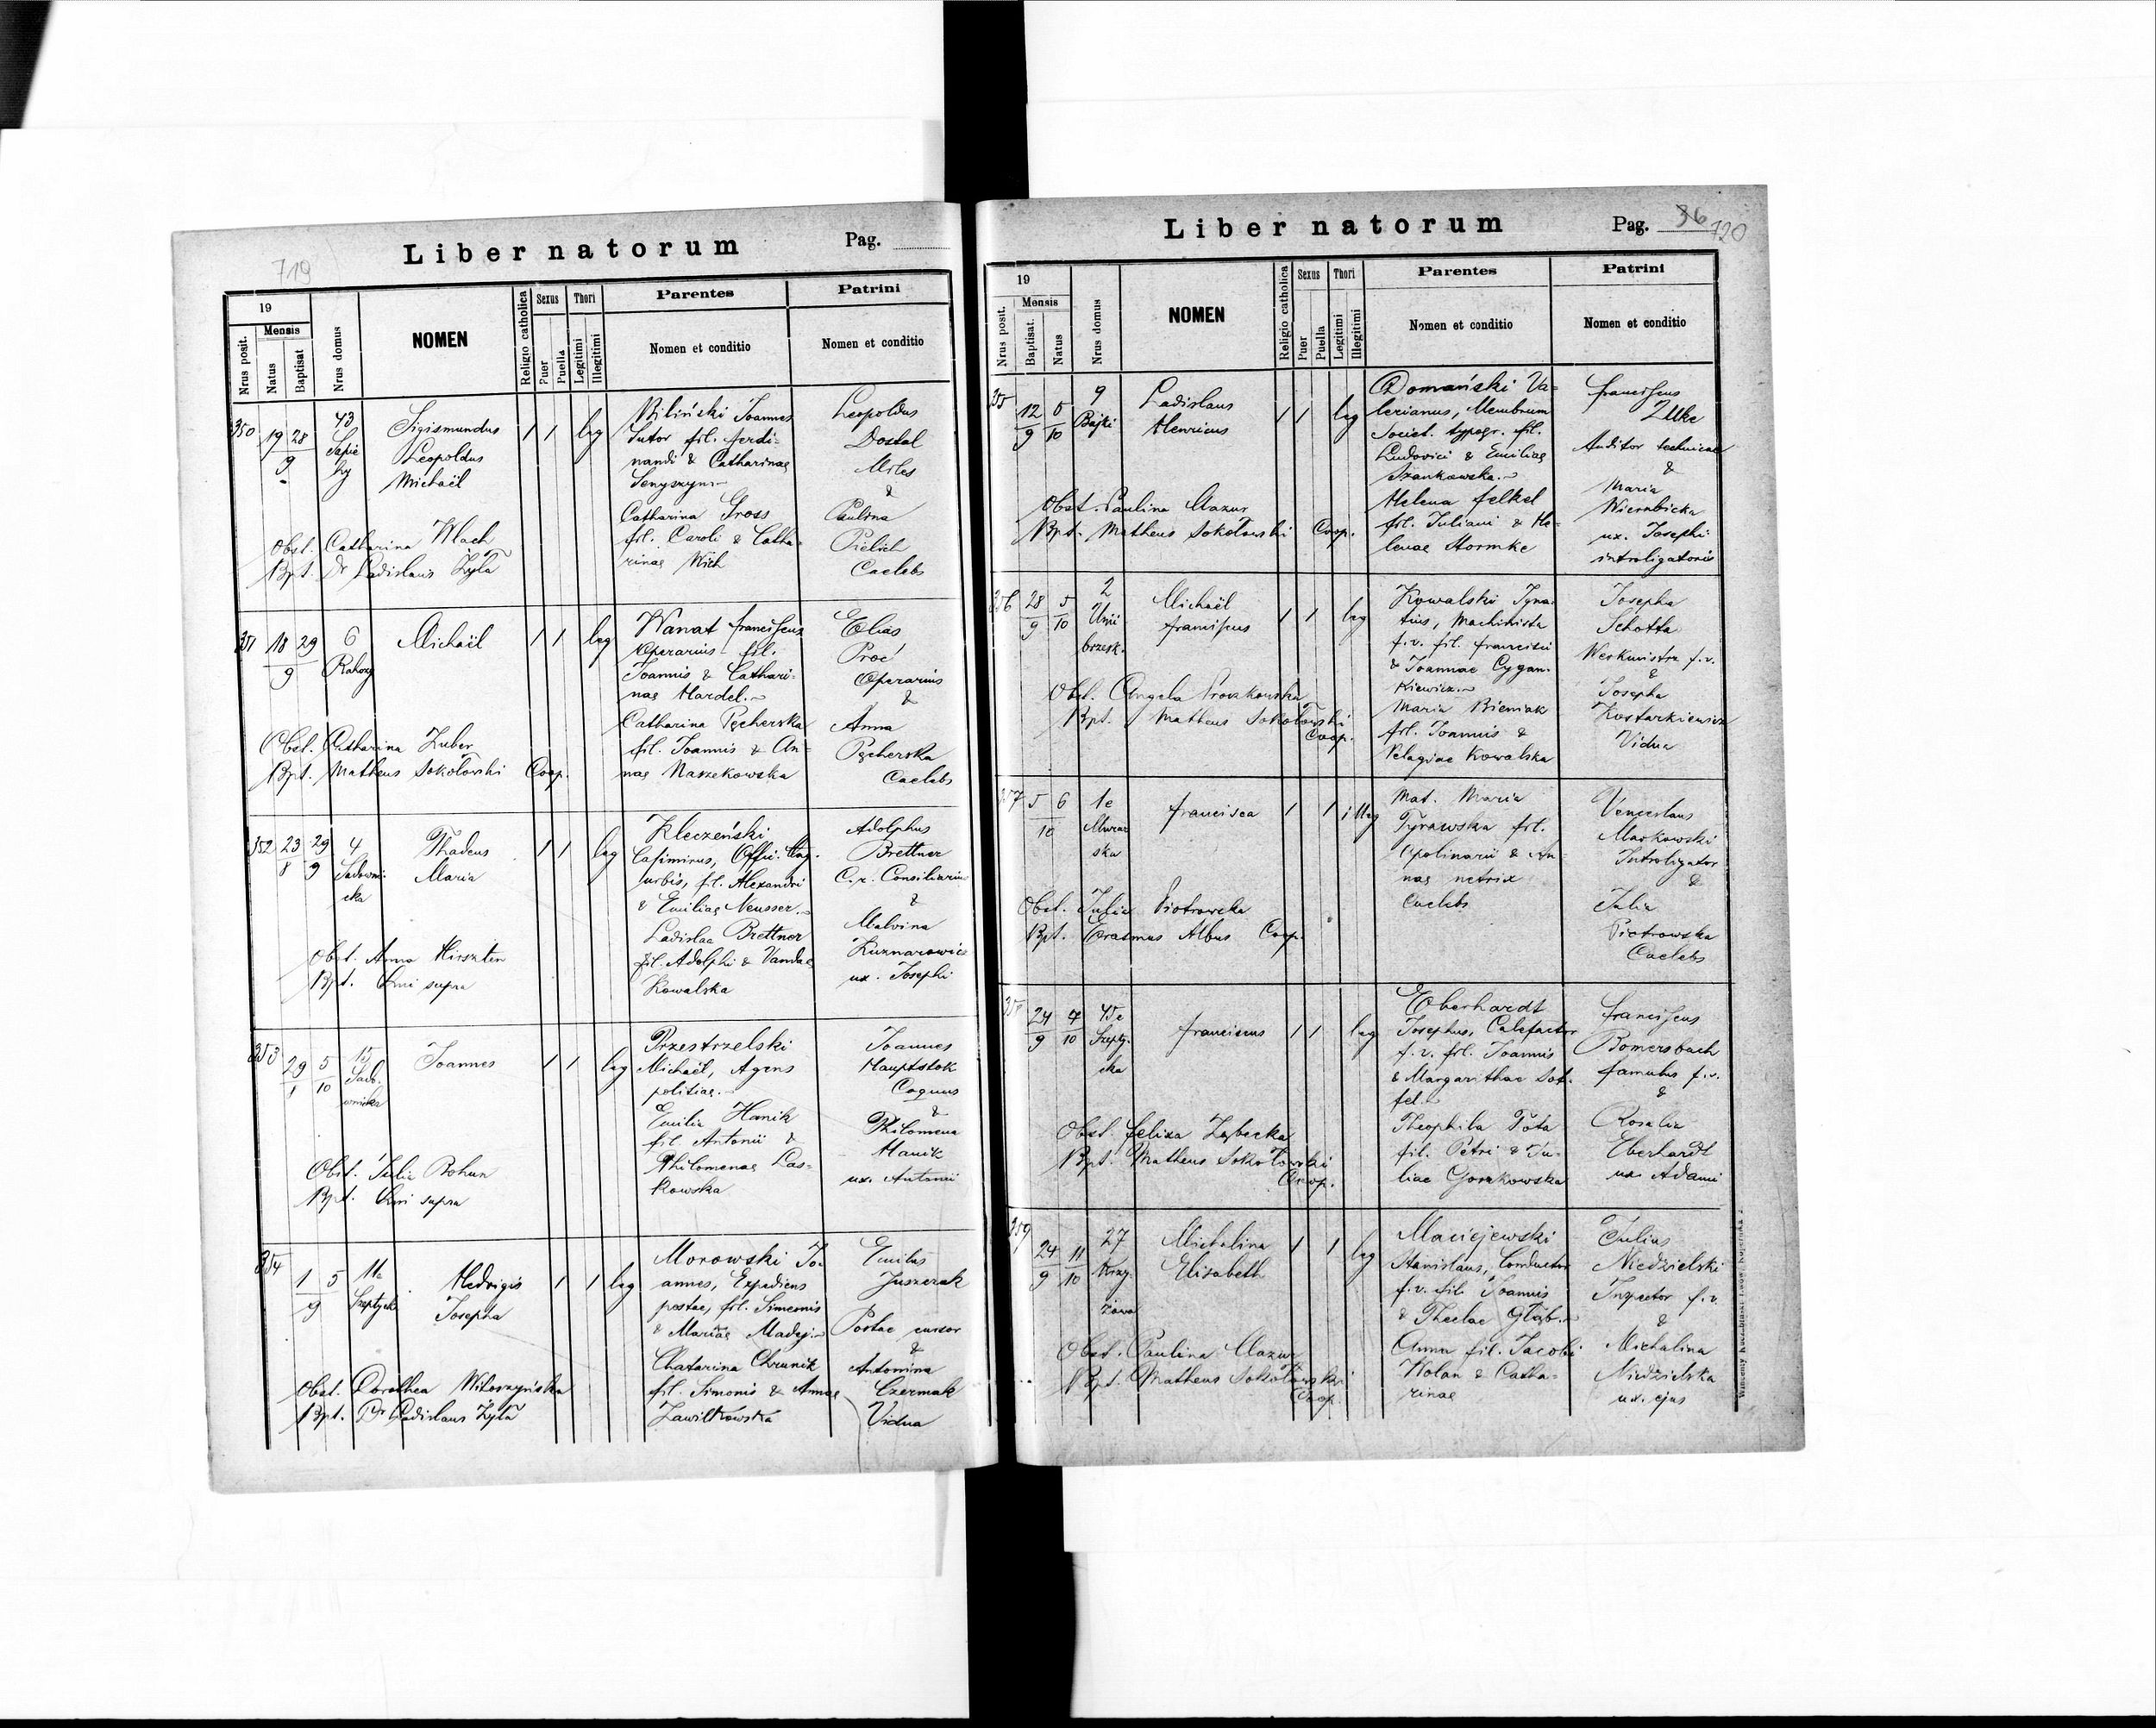 719
Liber natorum
Pag.
19
Nrus posit.
Mensis
Natus
Baptisat
Nrus domus
NOMEN
Religio catholica
Sexus
Puer
Puella
Thori
Legitimi
Illegitimi
Parentes
Nomen et conditio
Patrini
Nomen et conditio
350
19 28
9
43
Sapie
hy
Sigismundus
Leopoldus
Michaël
1 1 leg
Biliński Joannes
Sutor fil. Ferdi-
nandi & Catharinae
Senyszyn
Catharina Gross
fil. Caroli & Catha-
rinae Wich
Leopoldus
Dostal
Miles
&
Paulina
Pielich
Caelebs
Obst. Catharina Wlach
Bpt. Dr Ladislaus Żyła
351
18 29
9
6
Rahozy
Michaël
1 1 leg
Wanat Franciscus
Operarius fil.
Joannis & Cathari-
nae Hardel.
Catharina Pęcherska
fil. Joannis & An-
nae Naszekowska
Elias
Proć
Operarius
&
Anna
Pęcherska
Caelebs
Obst. Catharina Zuber
Bpt. Matheus Sokołowski Coop.
352
23 29
8 9
4
Sadowni-
cka
Thadeus
Maria
1 1 leg
Kleczeński
Casimirus, Offic. Mag.
urbis, fil. Alexandri
& Emiliae Neusser.
Ladislaa Brettner
fil. Adolphi & Vandae
Kowalska
Adolphus
Brettner
C.r. Consiliarius
&
Malvina
Kuznarowicz
ux. Josephi
Obst. Anna Hirszten
Bpt. Qui supra
353
29 5
1 10
15
Sado-
wnicka
Joannes
1 1 leg
Przestrzelski
Michaël, Agens
politiae.
Emilia Hanik
fil Antonii &
Philomenae Las-
kowska
Joannes
Hauptstok
Coquus
&
Philomena
Hanik
ux. Antonii
Obst. Julia Bohun
Bpt. Qui supra
354
1 5
9
11a
Szeptyck
Hedvigis
Josepha
1 1 leg
Morowski Jo-
annes, Expediens
postae, fil. Simeonis
& Mariae Madej.
Chatarina Chrunik
fil. Simonis & Annae
Zawiłkowska
Emilus
Juszczak
Postae cursor
&
Antonina
Czermak
Vidua
Obst. Dorothea Witoszyńska
Bpt. Dr Ladislaus Żyła
Liber natorum
Pag. 36 720
19
Nrus posit.
Mensis
Baptisat.
Natus
Nrus domus
NOMEN
Religio catholica
Sexus
Puer
Puella
Thori
Legitimi
Illegitimi
Parentes
Nomen et conditio
Patrini
Nomen et conditio
355
12 5
9 10
9
Bajki
Ladislaus
Henricus
1 1 leg
Domański Va-
lerianus, Membrum
Societ. typogr. fil.
Ludovici & Emiliae
Szankowska.
Helena Felkel
fil. Juliani & He-
lenae Hormke
Franciscus
Zilke
Auditor technicae
&
Maria
Wiernbicka
ux. Josephi
introligatoris
Obst. Paulina Mazur
Bpt. Matheus Sokołowski Coop.
356
28 5
9 10
2
Unii
brzesk.
Michaël
Franciscus
1 1 leg
Kowalski Igna-
tius, Machinista
f.v. fil. Francisci
& Joannae Cygan-
kiewicz.
Maria Bieniak
fil. Joannis &
Pelagiae Kowalska
Josepha
Schotta
Werkmistrz f.v.
&
Josepha
Kostarkiewicz
Vidua
Obst. Angela Proszkowska
Bpt. Matheus Sokołowski
Coop.
357
5 6
10
1e
Murar
ska
Francisca
1 1 illeg
Mat. Maria
Tyrawska fil.
Apolinarii & An-
nae netrix
Caelebs
Venceslaus
Markowski
Introligator
&
Julia
Piotrowska
Caelebs
Obst. Julia Piotrowska
Bpt. Erasmus Albus Coop.
358
24 7
9 10
45c
Szepty-
cka
Franciscus
1 1 leg
Eberhardt
Josephus, Calefactor
f.v. fil. Joannis
& Margarithae Stof-
fel.
Theophila Pota
fil. Petri & Ju-
liae Gorakowska
Franciscus
Bomersbach
famulus f.v.
&
Rosalia
Eberhardt
ux. Adami
Obst. Felixa Zębecka
Bpt. Matheus Sokołowski
Coop.
359
24 11
9 10
27
Krzy-
żowa
Michalina
Elisabeth
1 1 leg
Maciejewski
Stanislaus, Conductor
f.v. fil. Joannis
& Theclae Głąb.
Anna fil. Jacobi
Wolan & Catha-
rinae
Julius
Niedzielski
Inspector f.v.
&
Michalina
Niedzielska
ux. ejus
Obst. Paulina Mazur
Bpt. Matheus Sokołowski
Coop.